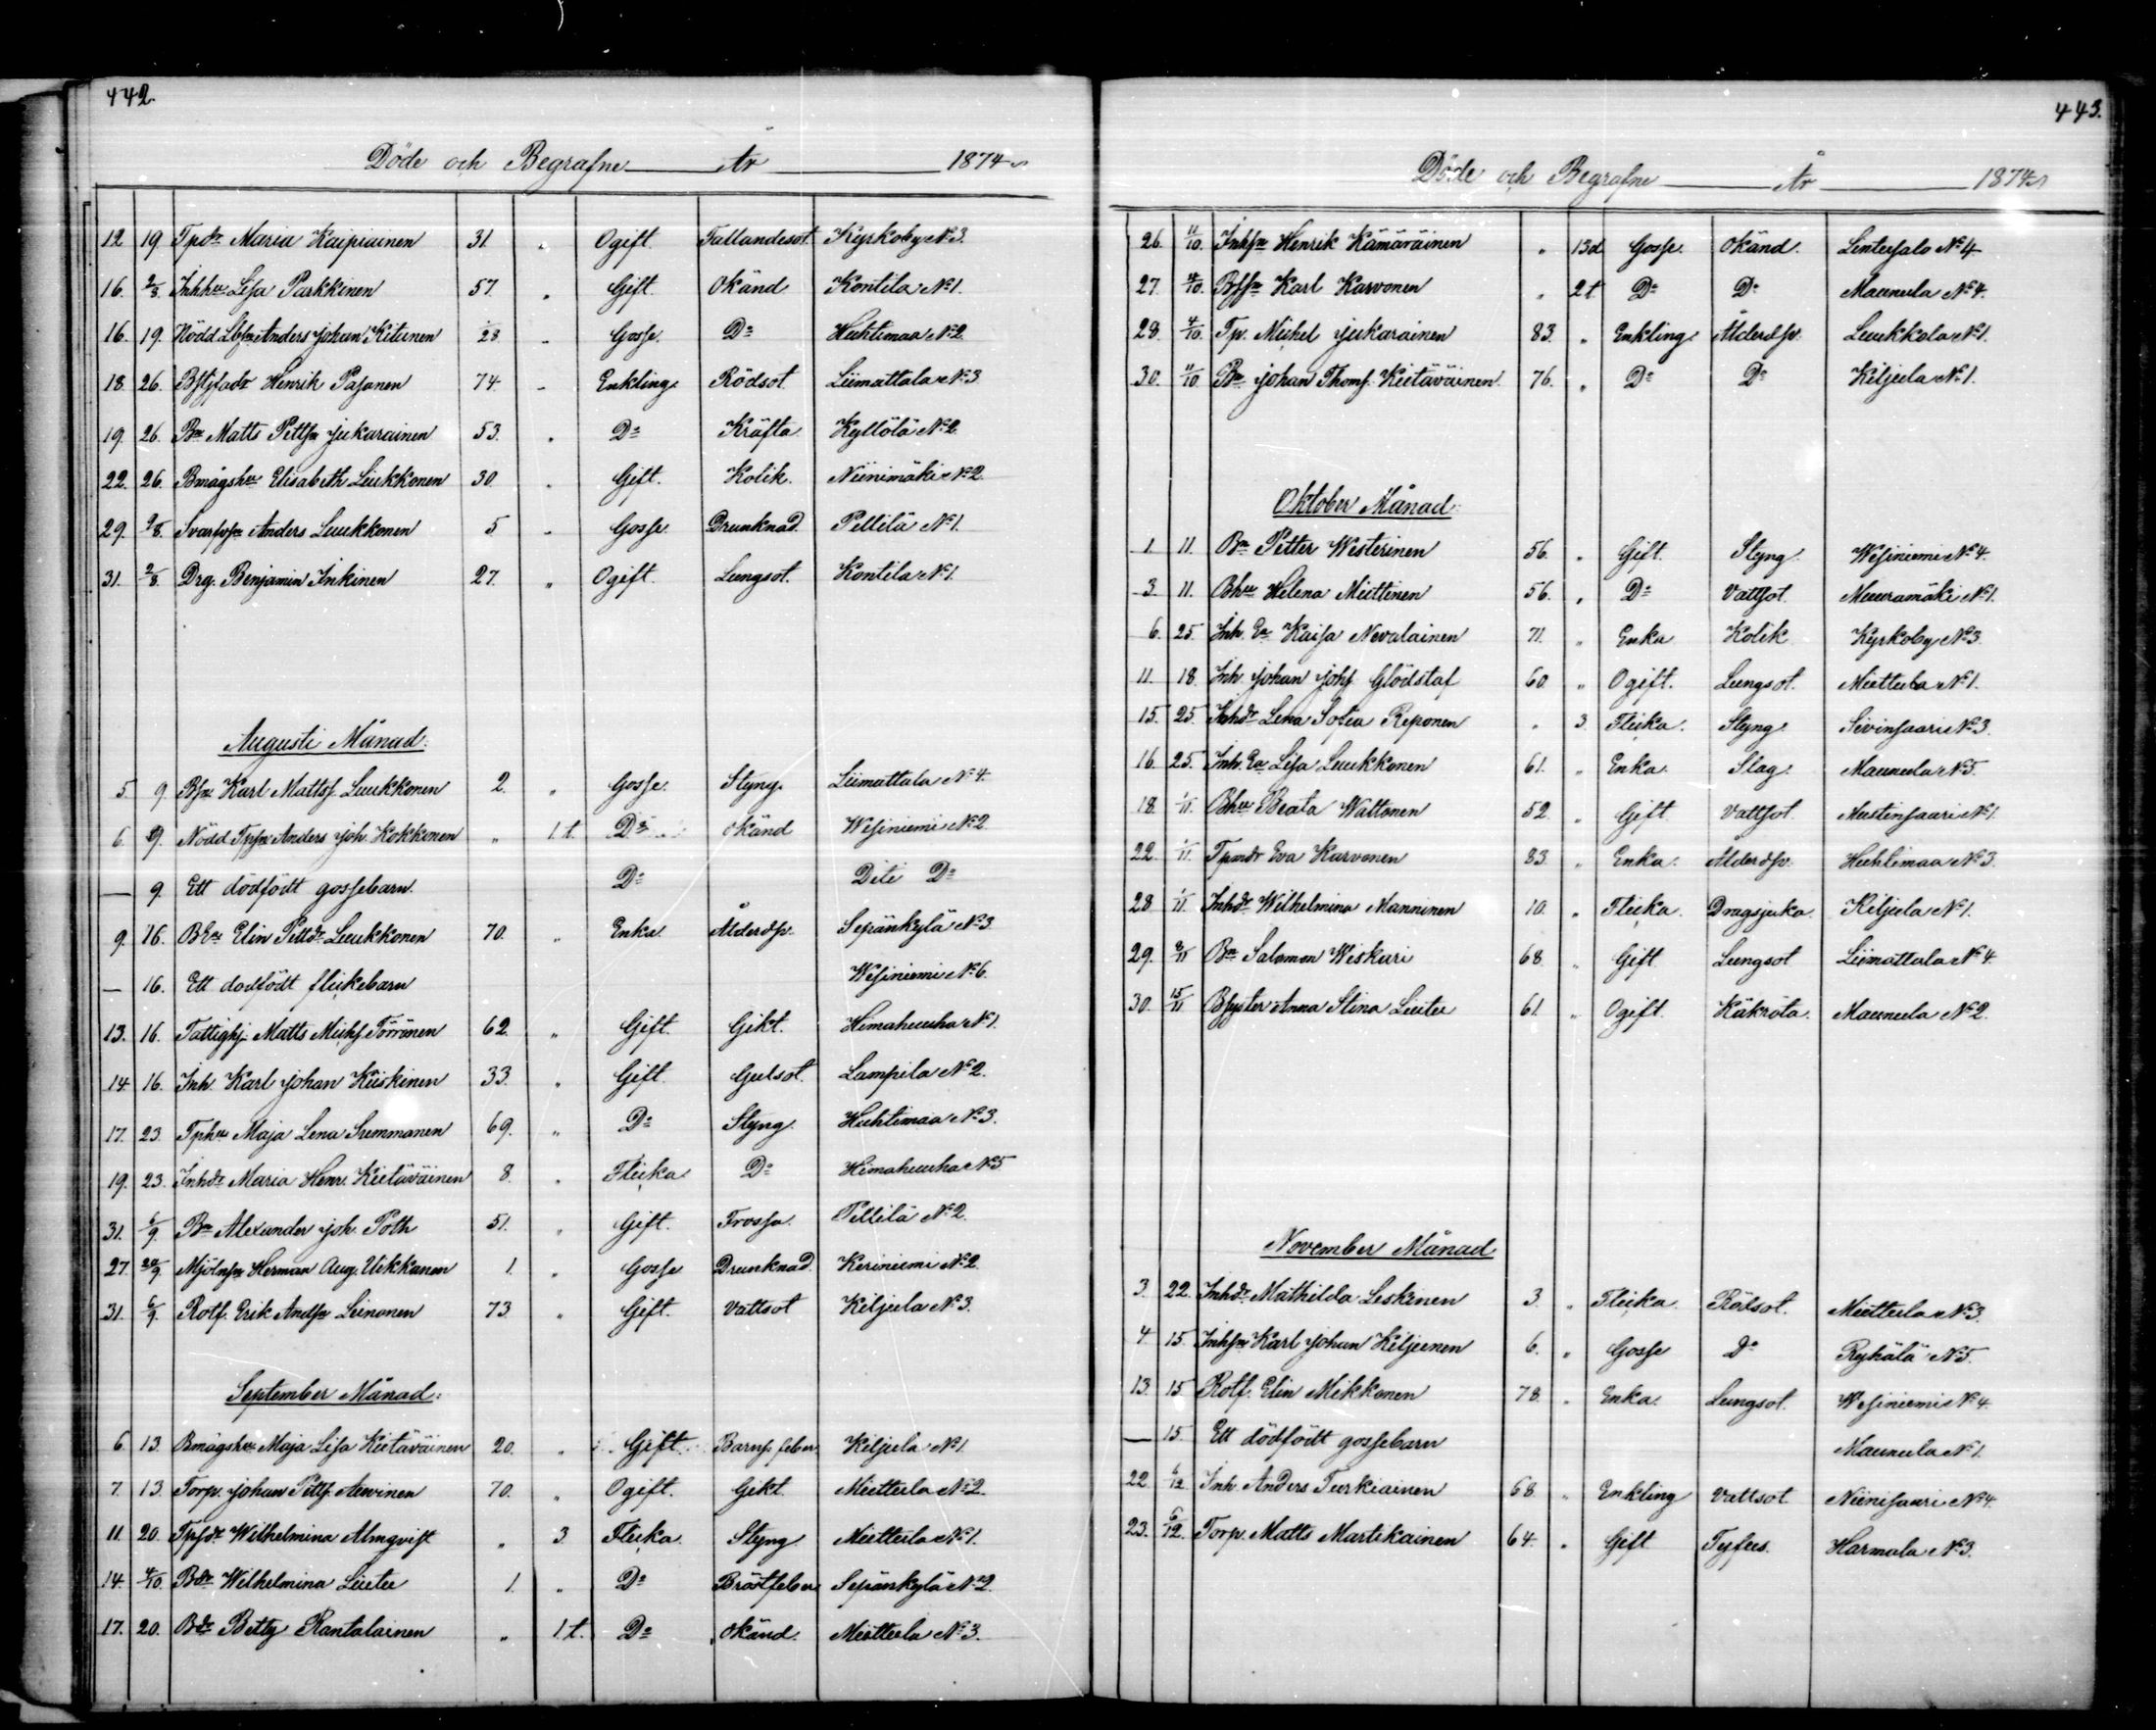 442.
Döde och Begrafne År 1874
12 19 Tpdr Maria Kaipiainen 31. " Ogift. Fallandesot. Kyrkoby No 3.
16. 2/8 Inhhu Lisa Parkkinen 57. " Gift. Okänd Kontila No 1.
16. 19. Anders Johan Kitunen 28 " Gosse. Do Huhtimaa No 2
18. 26. Henrik Pasanen 74 " Enkling. Rödsot Liimattala No 3.
19. 26. Bn Matts Pettsn Jukarainen 53. " Do Kräfta Kyllölä No 2.
22. 26. Bmågshu Elisabeth Liukkonen 30. " Gift. Kolik. Niinimäki No 2
29. 2/8. Anders Luukkonen 5 " Gosse. Drunknad. Pellilä No 1.
31. 2/8. Drg. Benjamin Inkinen 27. " Ogift. Lungsot. Kontila No 1.
Augusti Månad:
5. 9 Bsn Karl Mattss. Luukkonen 2. " Gosse. Styng. Liimattala No 4.
6. 9. Nödd Tpsn Anders Joh. Kokkonen " 1 t. Do okänd Wesiniemi No 2
— 9. Ett dödfödt gossebarn. Do Dito Do
9. 16. BEa Elin Pettdr Luukkonen 70. " Enka. Ålderdsv. Sepänkylä No 3.
— 16. Ett dodfödt flickebarn Wesiniemi No 6.
13. 16. Fattighj. Matts Michs. Törrönen 62. " Gift. Gikt. Himahuuha No 1.
14. 16. Inh. Karl Johan Kiiskinen 33. " Gift. Gulsot. Lampila No 2.
17. 23. Tphu Maja Lena Summanen 69. " Do Styng. Huhtimaa No 3.
19. 23. Inhdr Maria Henr. Kietäväinen 8. " Flicka Do Himahuuha No 5
31. 6/9. Bn Alexander Joh. Poth 51. " Gift. Frossa. Pellilä No 2.
27. 20/9. Herman Aug. Ukkonen 1. " Gosse Drunknad Keriniemi No 2
31. 6/9. Rotf. Erik Andsn Leinonen 73 " Gift. Vattsot Kiljula No 3.
September Månad:
6. 13. Bmågshu Maja Lisa Kietäväinen 20. " Gift. Barnsfeber Kiljula No 1.
7. 13. Torp. Johan Pettss. Auvinen 70. " Ogift. Gikt. Miettula No 2.
11. 20. Tpsdr Wilhelmina Almqvist " 3. Flicka. Styng Miettula No 1.
14. 4/10. Bdr Wilhelmina Liute 1. " Do Bröstfeber Sepänkylä No 2
17. 20. Bdr Betty Rantalainen " 1 t. Do okänd. Miettula No 3.
443.
Döde och Begrafne År 1874
26. 11/10. Inhsn Henrik Kämäräinen " 13 d Gosse. Okänd. Lintusalo No 4
27. 4/10. Karl Karvonen " 2 t Do Do Maunula No 4.
28. 4/10. Tp. Michel Jukarainen 83. " Enkling Ålderdsv. Luukkola No 1.
30. 11/10. Bn Johan Thoms. Kietäväinen. 76. " Do Do Kiljula No 1.
Oktober Månad:
1 11. Bn Petter Westerinen 56. " Gift. Styng. Wesiniemi No 4.
3. 11. Bhu Helena Miettinen 56. " Do Vattsot. Muuramäki No 1.
6. 25. Inh. Ea Kaisa Nevalainen 71. " Enka Kolik Kyrkoby No 3.
11. 18. Inh. Johan Johs. Glödstaf 60. " Ogift. Lungsot. Miettula No 1.
15. 25. Inhdr Lena Sofia Reponen " 3. Flicka. Styng. No 3.
16. 25. Inh. Ea Lisa Luukkonen 61. " Enka. Slag. Maunula No 5.
18. 1/11. Bhu Beata Wattonen 52. " Gift. Vattsot. Mustinsaari No 1.
22. 1/11. Eva Karvonen 83. " Enka. Ålderdsv. Huhtimaa No 3.
28 1/11. Inhdr Wilhelmina Manninen 10. " Flicka. Dragsjuka. Kiljula No 1.
29. 8/11 Bn Salomon Wiskari 68. " Gift Lungsot Liimattala No 4.
30. 15/11 Anna Stina Liute 61. " Ogift. Kräkröta. Maunula No 2.
November Månad
3. 22. Inhdr Mathilda Leskinen 3. " Flicka. Rödsot. Miettula No 3.
4 15. Inhsn Karl Johan Kiljunen 6. " Gosse Do Ryhälä No 5.
13. 15 Rotf. Elin Mikkonen 78. " Enka. Lungsot. Wesiniemi No 4.
— 15. Ett dödfödt gossebarn Maunula No 1.
22. 6/12 Inh. Anders Turkiainen 68. " Enkling Vattsot Niinisaari No 4.
23. 6/12. Torp. Matts Martikainen 64. " Gift. Tyfus. Harmala No 3.